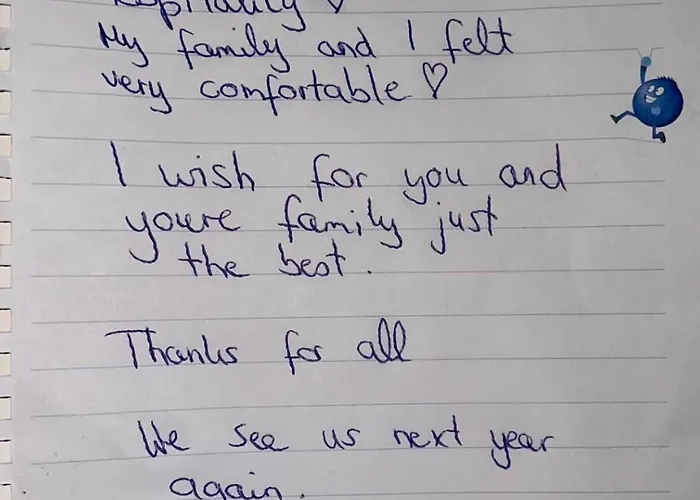 My family and I felt
very comfortable ♡
I wish for you and
youre family just
the best.
Thanks for all
We see us next year
again.